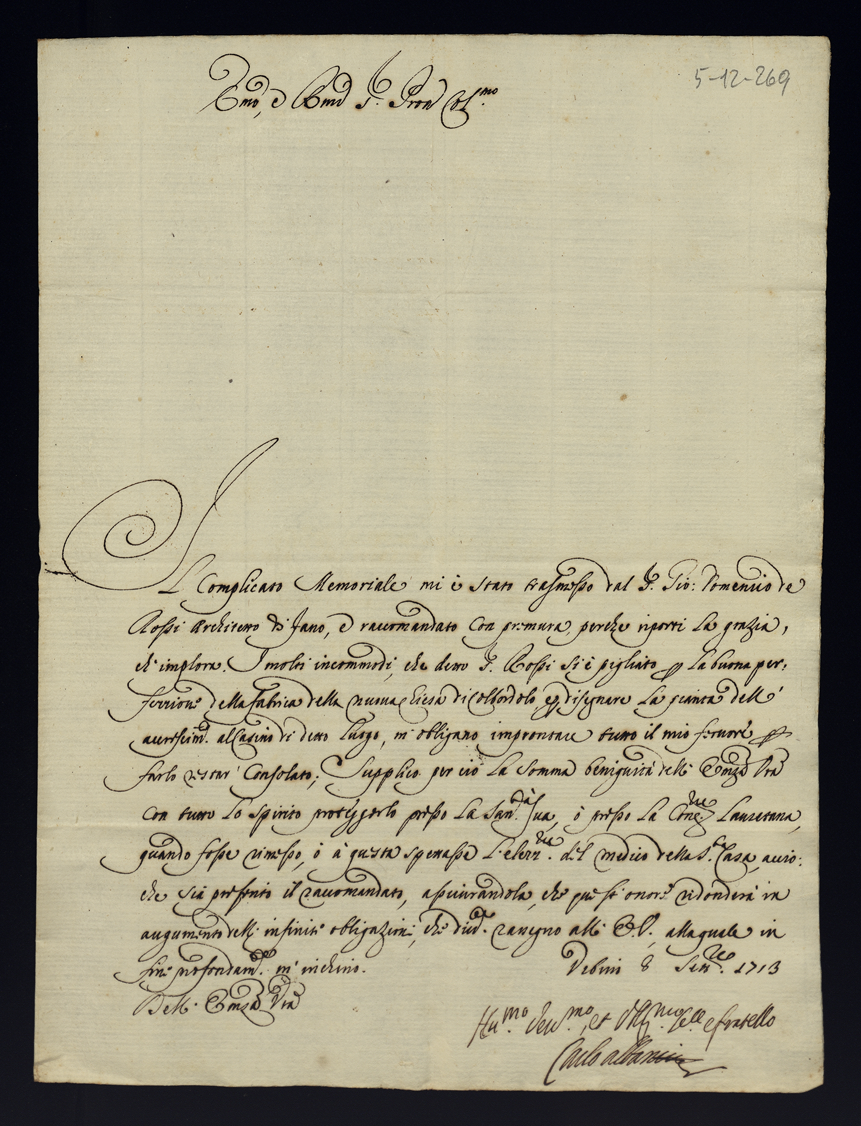 5-12-269
Emo, e Rmo Sr. Pron Colmo
IL Complicato Memoriale mi è stato trasmesso dal Sr. Gio: Domenico de
Rossi Architetto di Jano, e raccomandato con premura, perche riporti La grazia,
ch'implora. I molti incommodi, che detto Sr. Rossi si è pigliato per La buona per-
fezzione della fabrica della nuova Chiesa di Colbordolo, e disegnare La pianta dell'
accrescimto. al Casino di detto Luogo, m'obligano improntare tutto il mio fervore per
farlo restar Consolato; Supplico perciò La somma benignità dell' Emza Vra
con tutto Lo spirito proteggerlo presso La Santà Sua, ò presso La Congne Lauretana,
quando fosse rimesso, ò à questa spettasse L'elezzne. del medico della Sta. Casa, accio-
che sia prescelto il raccomandato, assicurandola, che quest'onore ridonderà in
augumento dell' infinite obligazioni, che div. rassegno all' E.V., alla quale in
fine profondamte. m'inchino.
Urbino 8 Settre. 1713
Dell' Emza Vra
Humo. Devmo, et Obligmo Serre e fratello
Carlo Albani